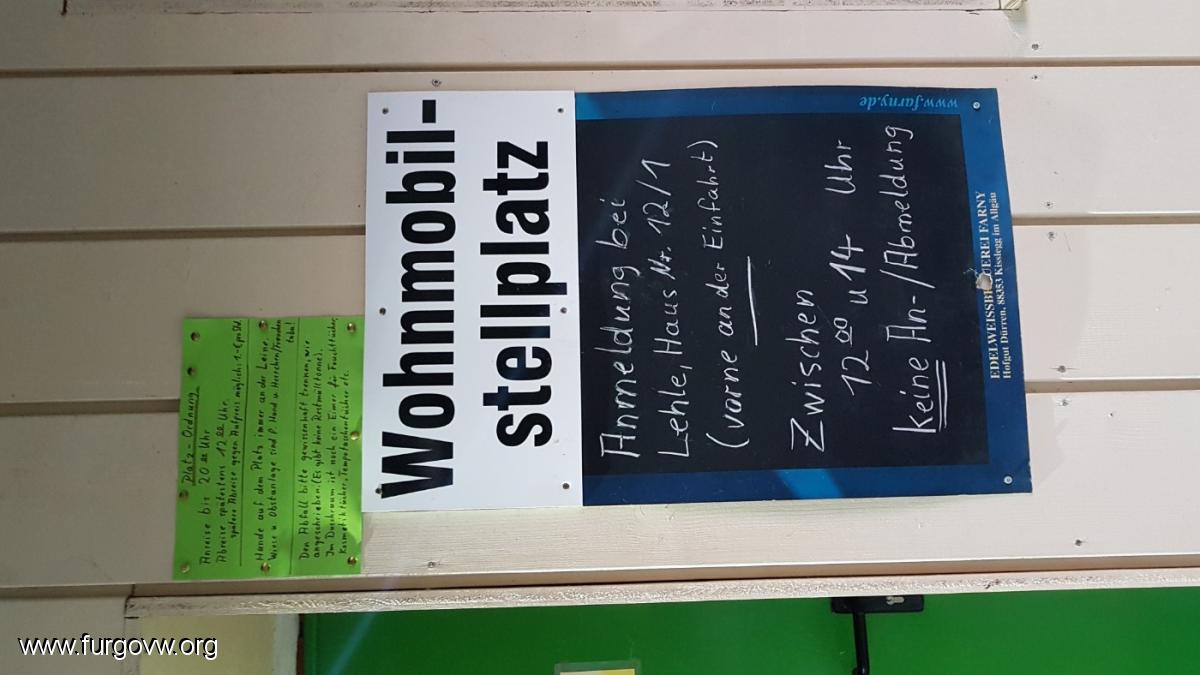 Platz-Ordnung
Anreise bis 20 00 Uhr
Abreise spätestens 12 00 Uhr
spätere Abreise gegen Aufpreis möglich: 1.- € pro Std.
Hunde auf dem Platz immer an der Leine.
Wiese u. Obstanlage sind f. Hund u. Herrchen/Frauchen
tabu!
Den Abfall bitte gewissenhaft trennen, wie
angeschrieben (Es gibt keine Restmülltonne).
Im Duschraum ist noch ein Eimer für Feuchttücher,
Kosmetiktücher, Tempotaschentücher etc.
Wohnmobil-
stellplatz
www.farny.de
Anmeldung bei
Lehle, Haus Nr. 12/1
(vorne an der Einfahrt)
Zwischen
12 00 u 14 Uhr
keine An-/Abmeldung
EDELWEISSBRAUEREI FARNY
Hofgut Dürren, 88353 Kisslegg im Allgäu
www.furgovw.org